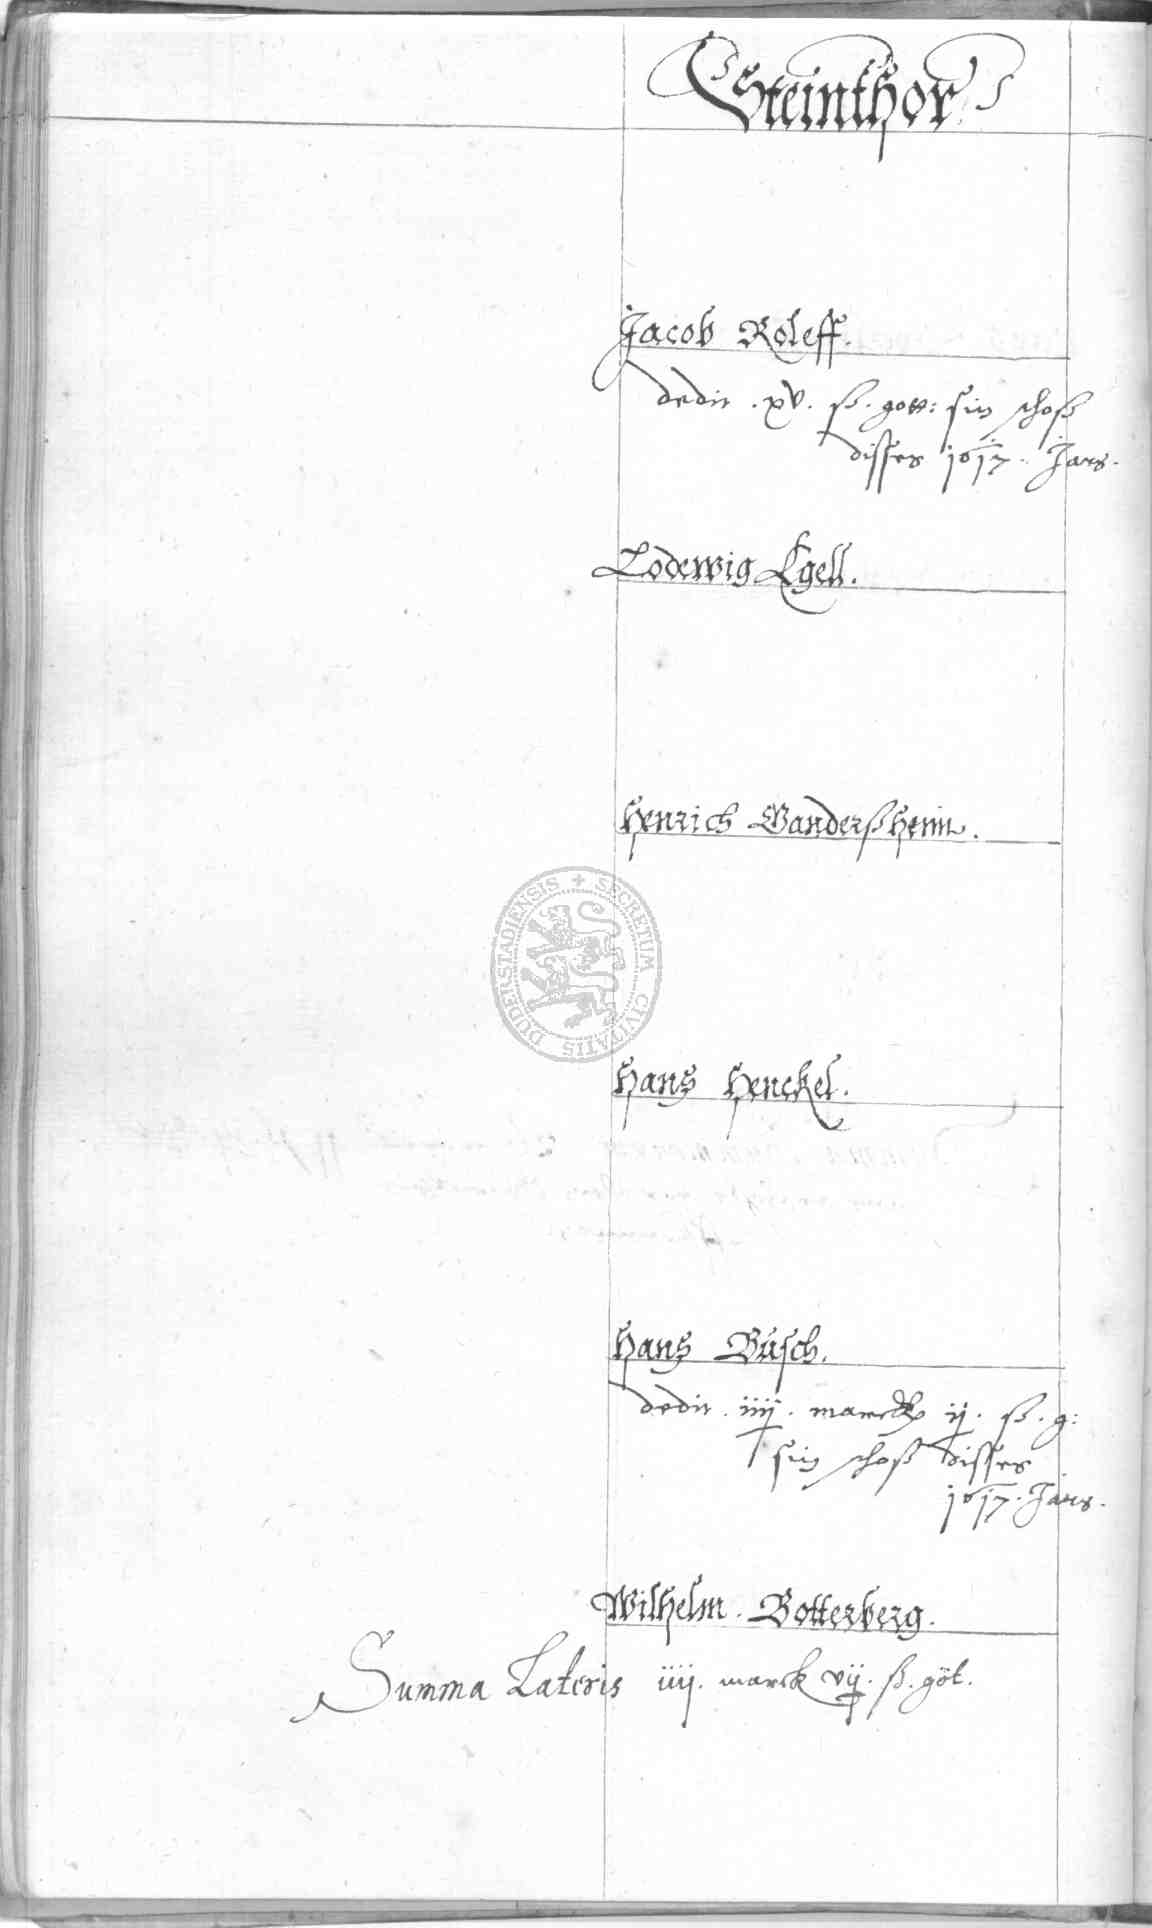 Steinthor
Jacob Roleff.
dedit . xv. ß. gott: sin schoß
disses 1617. Jars.
Lodewig Egell.
Henrich Ganderßheim.
DUDERSTADIENSIS + SECRETUM CIVITATIS
Hans Henckel.
Hans Busch.
dedit . iiij . marck ij . ß . g:
sin schoß disses
1617. Jars.
Wilhelm . Botterberg.
Summa Lateris iiij. marck vij. ß. göt.